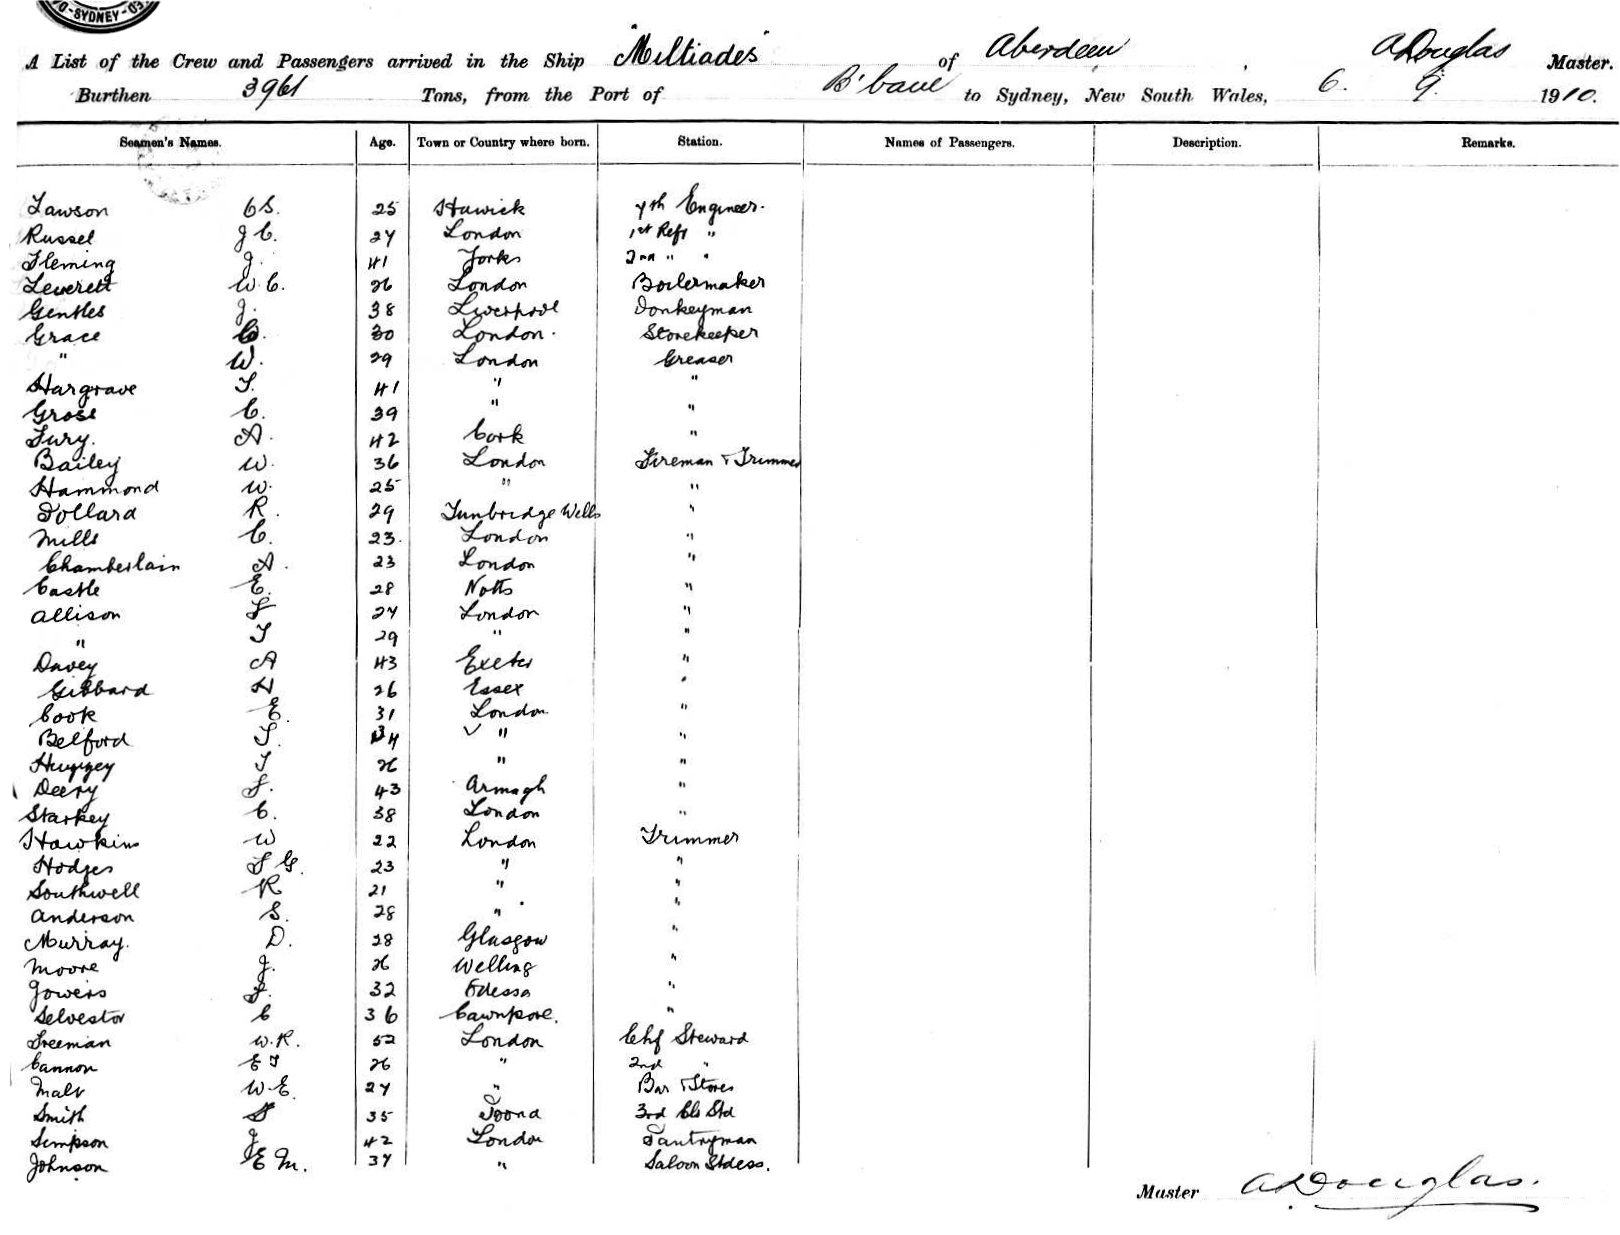 SYDNEY
A List of the Crew and Passengers arrived in the Ship "Miltiades" of Aberdeen A Douglas Master.
Burthen 3961 Tons, from the Port of B'bane to Sydney, New South Wales, 6. 9. 1910.
Seamen's Names. Age. Town or Country where born. Station. Names of Passengers. Description. Remarks.
Lawson C S. 25 Hawick 4th Engineer.
Russel J C. 27 London 1st Refr "
Fleming J. 41 Yorks 2nd " "
Leverett W. C. 26 London Boilermaker
Gentles J. 38 Liverpool Donkeyman
Grace C. 30 London. Storekeeper
" W. 29 London Greaser
Hargrave T. 41 " "
Grose C. 39 " "
Fury. A. 42 Cork "
Bailey W. 36 London Fireman & Trimmer
Hammond W. 25 " "
Pollard R. 29 Tunbridge Wells "
Mills C. 23. London "
Chamberlain A. 23 London "
Castle E. 28 Notts "
Allison F 27 London "
" T 29 " "
Davey A 43 Exeter "
Gibbard H 26 Essex "
Cook E. 31 London "
Belford T. 34 " "
Huggey T 26 " "
Deery F. 43 Armagh "
Starkey C. 38 London "
Hawkins W 22 London Trimmer
Hodges F G. 23 " "
Southwell R 21 " "
Anderson S. 28 " "
Murray. D. 28 Glasgow "
Moore J. 26 Welling "
Gowers F. 32 Odessa "
Selvestor C 36 Cawnpore. "
Freeman W. R. 52 London Chf Steward
Cannon E T 26 " 2nd "
Malt W. E. 27 " Bar & Stores
Smith F 35 Poona 3rd Cls Std
Simpson J 42 London Pantryman
Johnson E M. 37 " Saloon Stdess.
Master A Douglas.